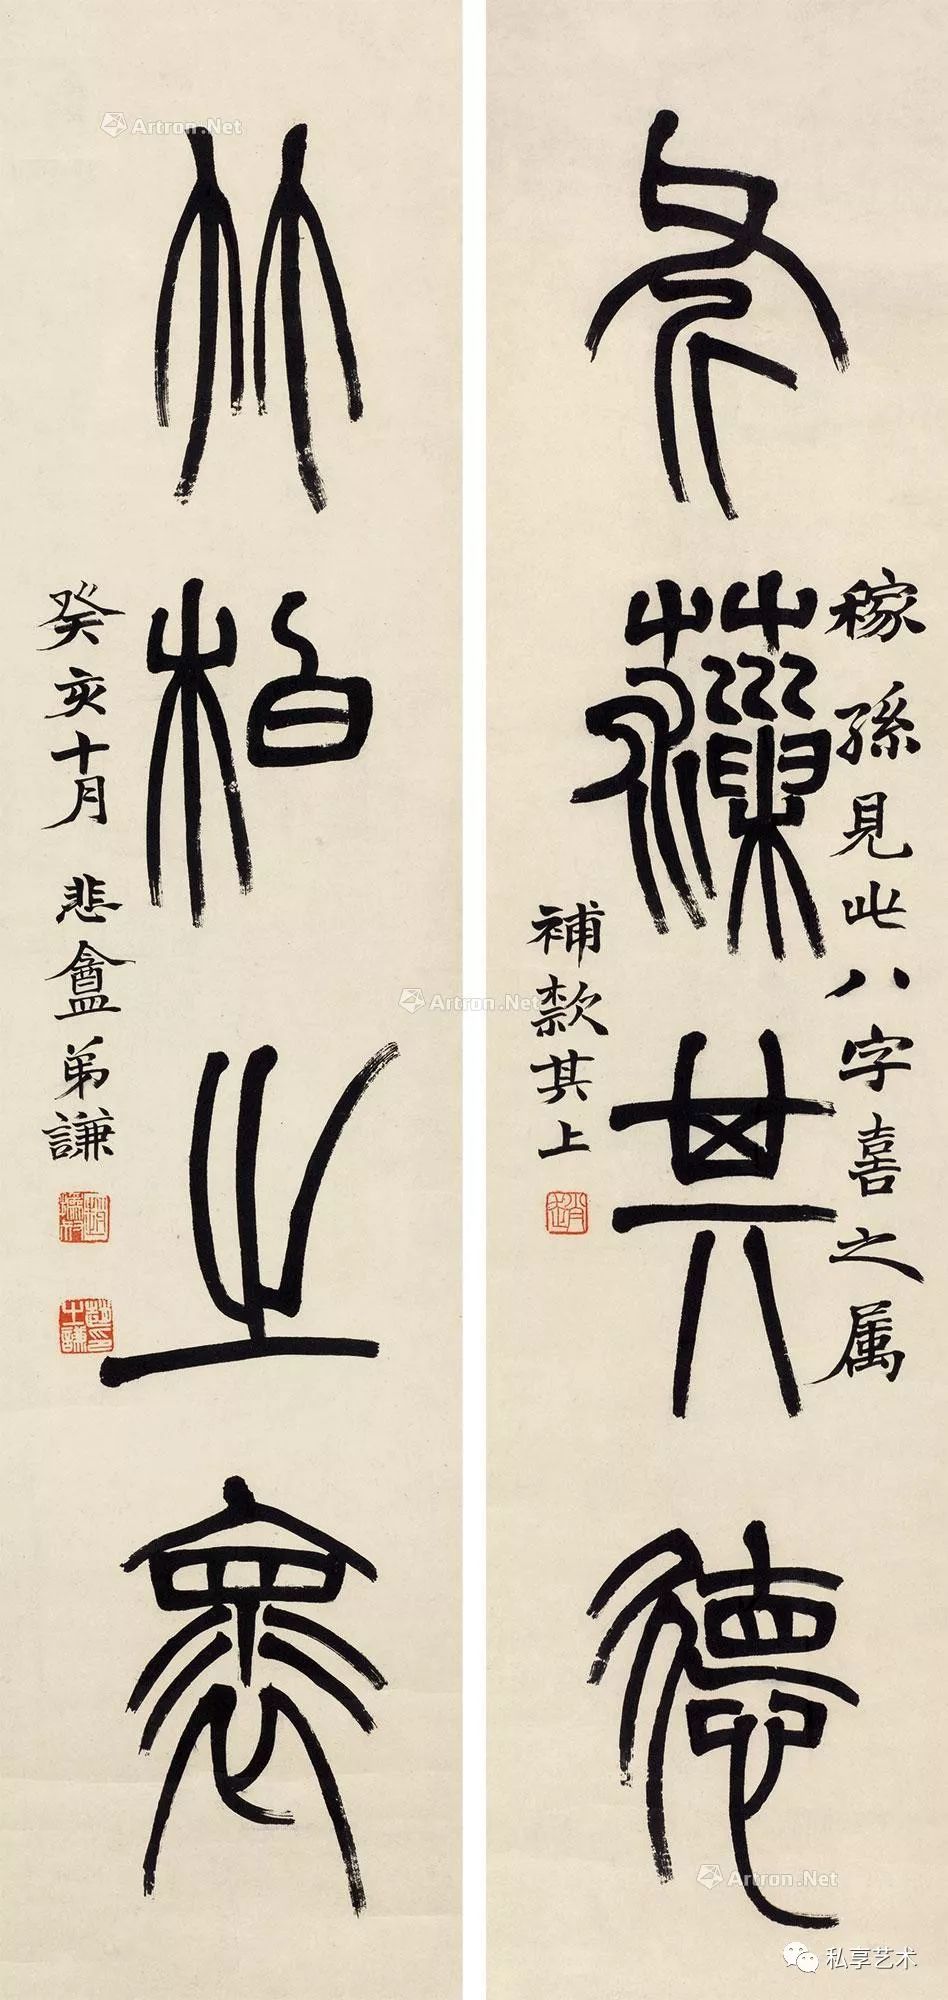 其德
稼孫見此八字喜之属
補款其上
趙
竹柏之褱
癸亥十月 悲盦弟謙
趙撝叔
趙之謙印
Artron.Net
Artron.Net
Artron.Net
私享艺术